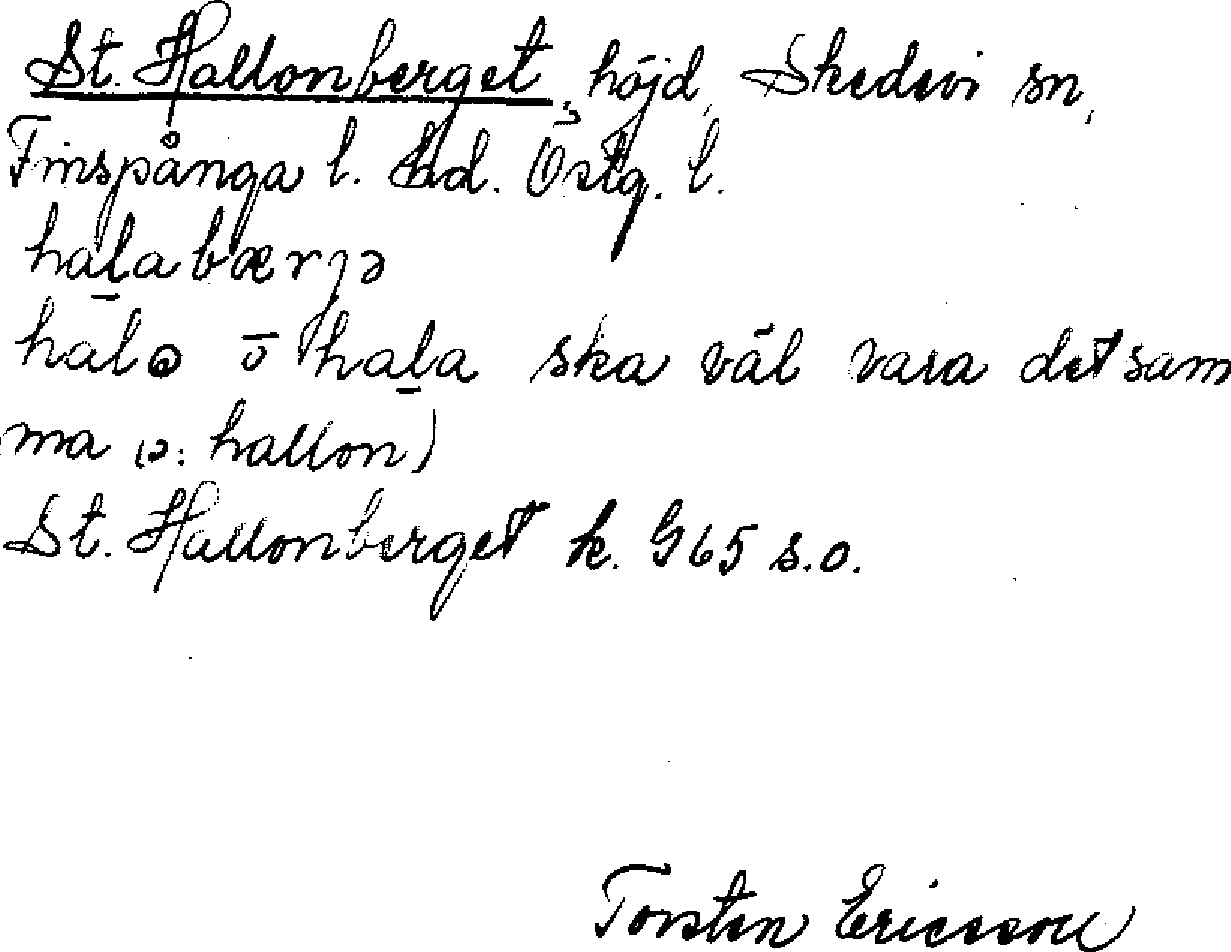 St. Hallonberget, höjd, Skedevi sn,
Finspånga l. hd. Östg. l.
ha̠labærjə
hal ō ha̠la ska väl vara det sam
ma (ɔ: hallon)
St. Hallonberget k. G65 s.o.
Torsten Ericsson